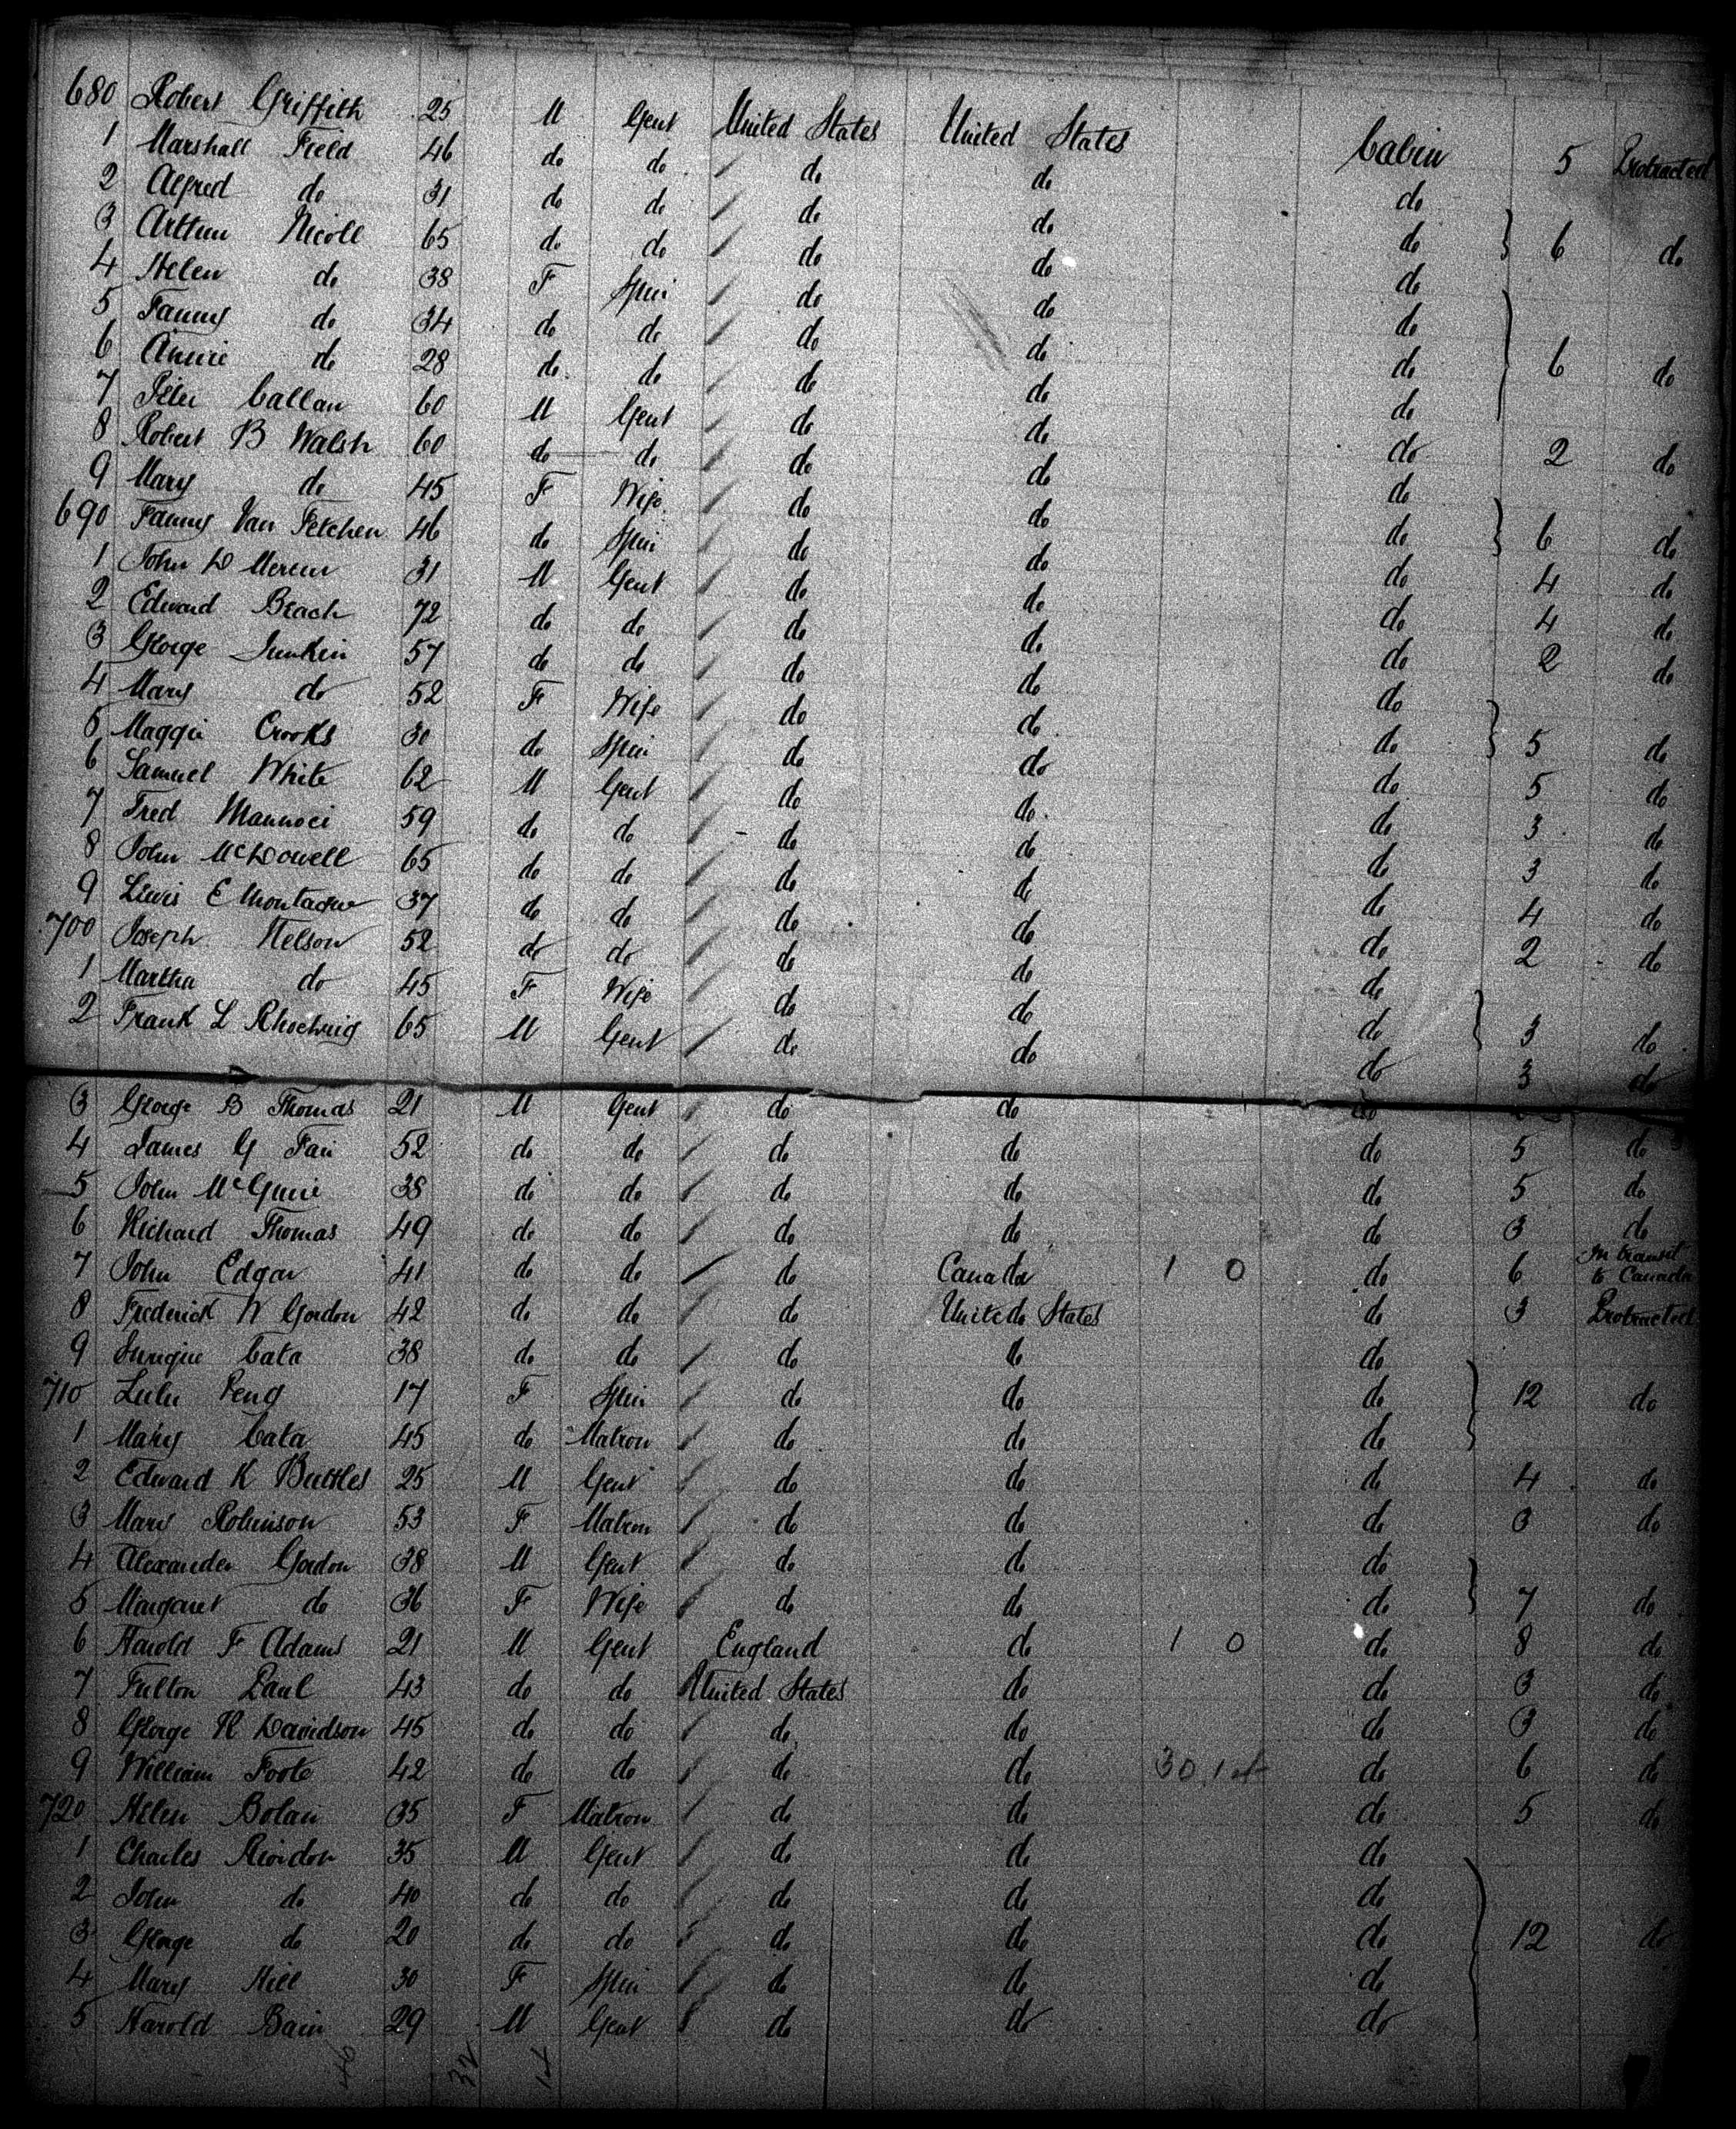 680 Robert Griffith 25 M Gent United States United States Cabin 5 Protracted
1 Marshall Field 46 do do do do do
2 Alfred do 31 do do do do do 6 do
3 Arthur Nicoll 65 do do do do do
4 Helen do 38 F Spin do do do
5 Fanny do 34 do do do do do 6 do
6 Annie do 28 do do do do do
7 Peter Callan 60 M Gent do do do 2 do
8 Robert B Walsh 60 do do do do do
9 Mary do 45 F Wife do do do 6 do
690 Fanny Van Petchen 46 do Spin do do do 4 do
1 John D Mercur 31 M Gent do do do 4 do
2 Edward Beach 72 do do do do do 2 do
3 George Junkin 57 do do do do do
4 Mary do 52 F Wife do do do 5 do
5 Maggie Crooks 30 do Spin do do do 5 do
6 Samuel White 62 M Gent do do do 3 do
7 Fred 59 do do do do do 3 do
8 John McDowell 65 do do do do do 4 do
9 Lewis E Montague 37 do do do do do 2 do
700 Joseph Nelson 52 do do do do do
1 Martha do 45 F Wife do do do 3 do
2 Frank L 65 M Gent do do do 3 do
3 George B Thomas 21 M Gent do do do
4 James G Fair 52 do do do do do 5 do
5 John McGuire 38 do do do do do 5 do
6 Richard Thomas 49 do do do do do 3 do
7 John Edgar 41 do do do Canada 1 0 do 6 In transit to Canada
8 Frederick W Gordon 42 do do do United States do 3 Protracted
9 Cata 38 do do do do do
710 Lulu 17 F Spin do do do 12 do
1 Mary Cata 45 do Matron do do do
2 Edward K Buttles 25 M Gent do do do 4 do
3 Mary Robinson 53 F Matron do do do 3 do
4 Alexander Gordon 38 M Gent do do do
5 Margaret do 36 F Wife do do do 7 do
6 Harold F Adams 21 M Gent England do 1 0 do 8 do
7 Fulton Paul 43 do do United States do do 3 do
8 George R Davidson 45 do do do do do 3 do
9 William Foote 42 do do do do 30 do 6 do
720 Helen Bolan 35 F Matron do do do 5 do
1 Charles Riordon 35 M Gent do do do
2 John do 40 do do do do do
3 George do 20 do do do do do 12 do
4 Mary Hill 30 F Spin do do do
5 Harold Bain 29 M Gent do do do
46 32 14